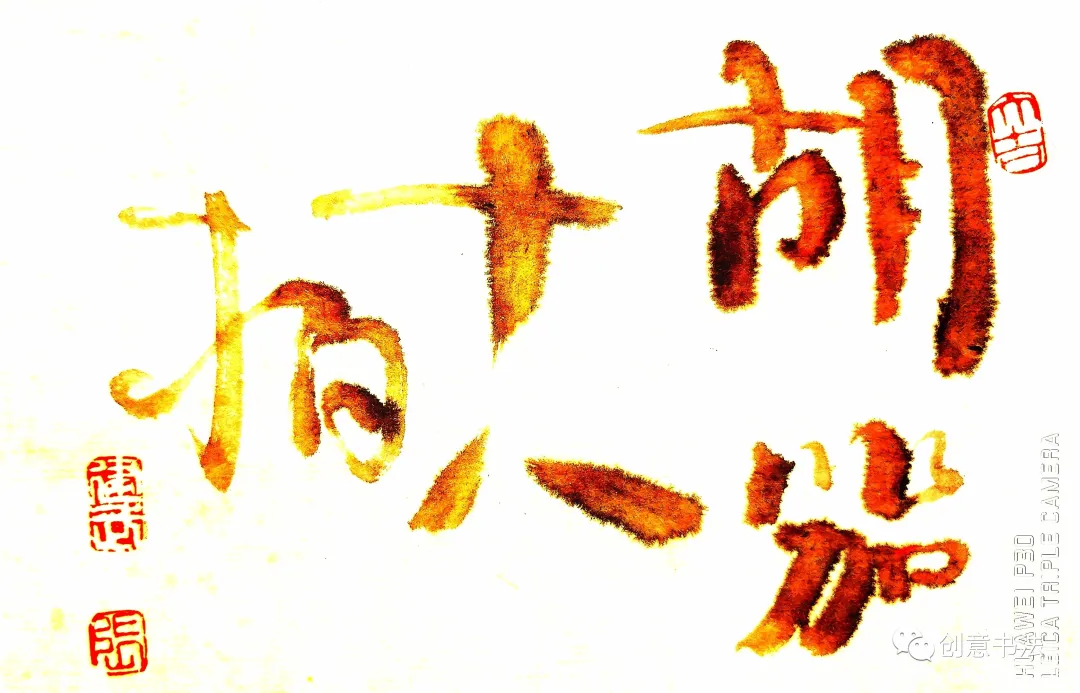 胡笳
十八
拍
HUAWEI P30
LEICA TRIPLE CAMERA
创意书法